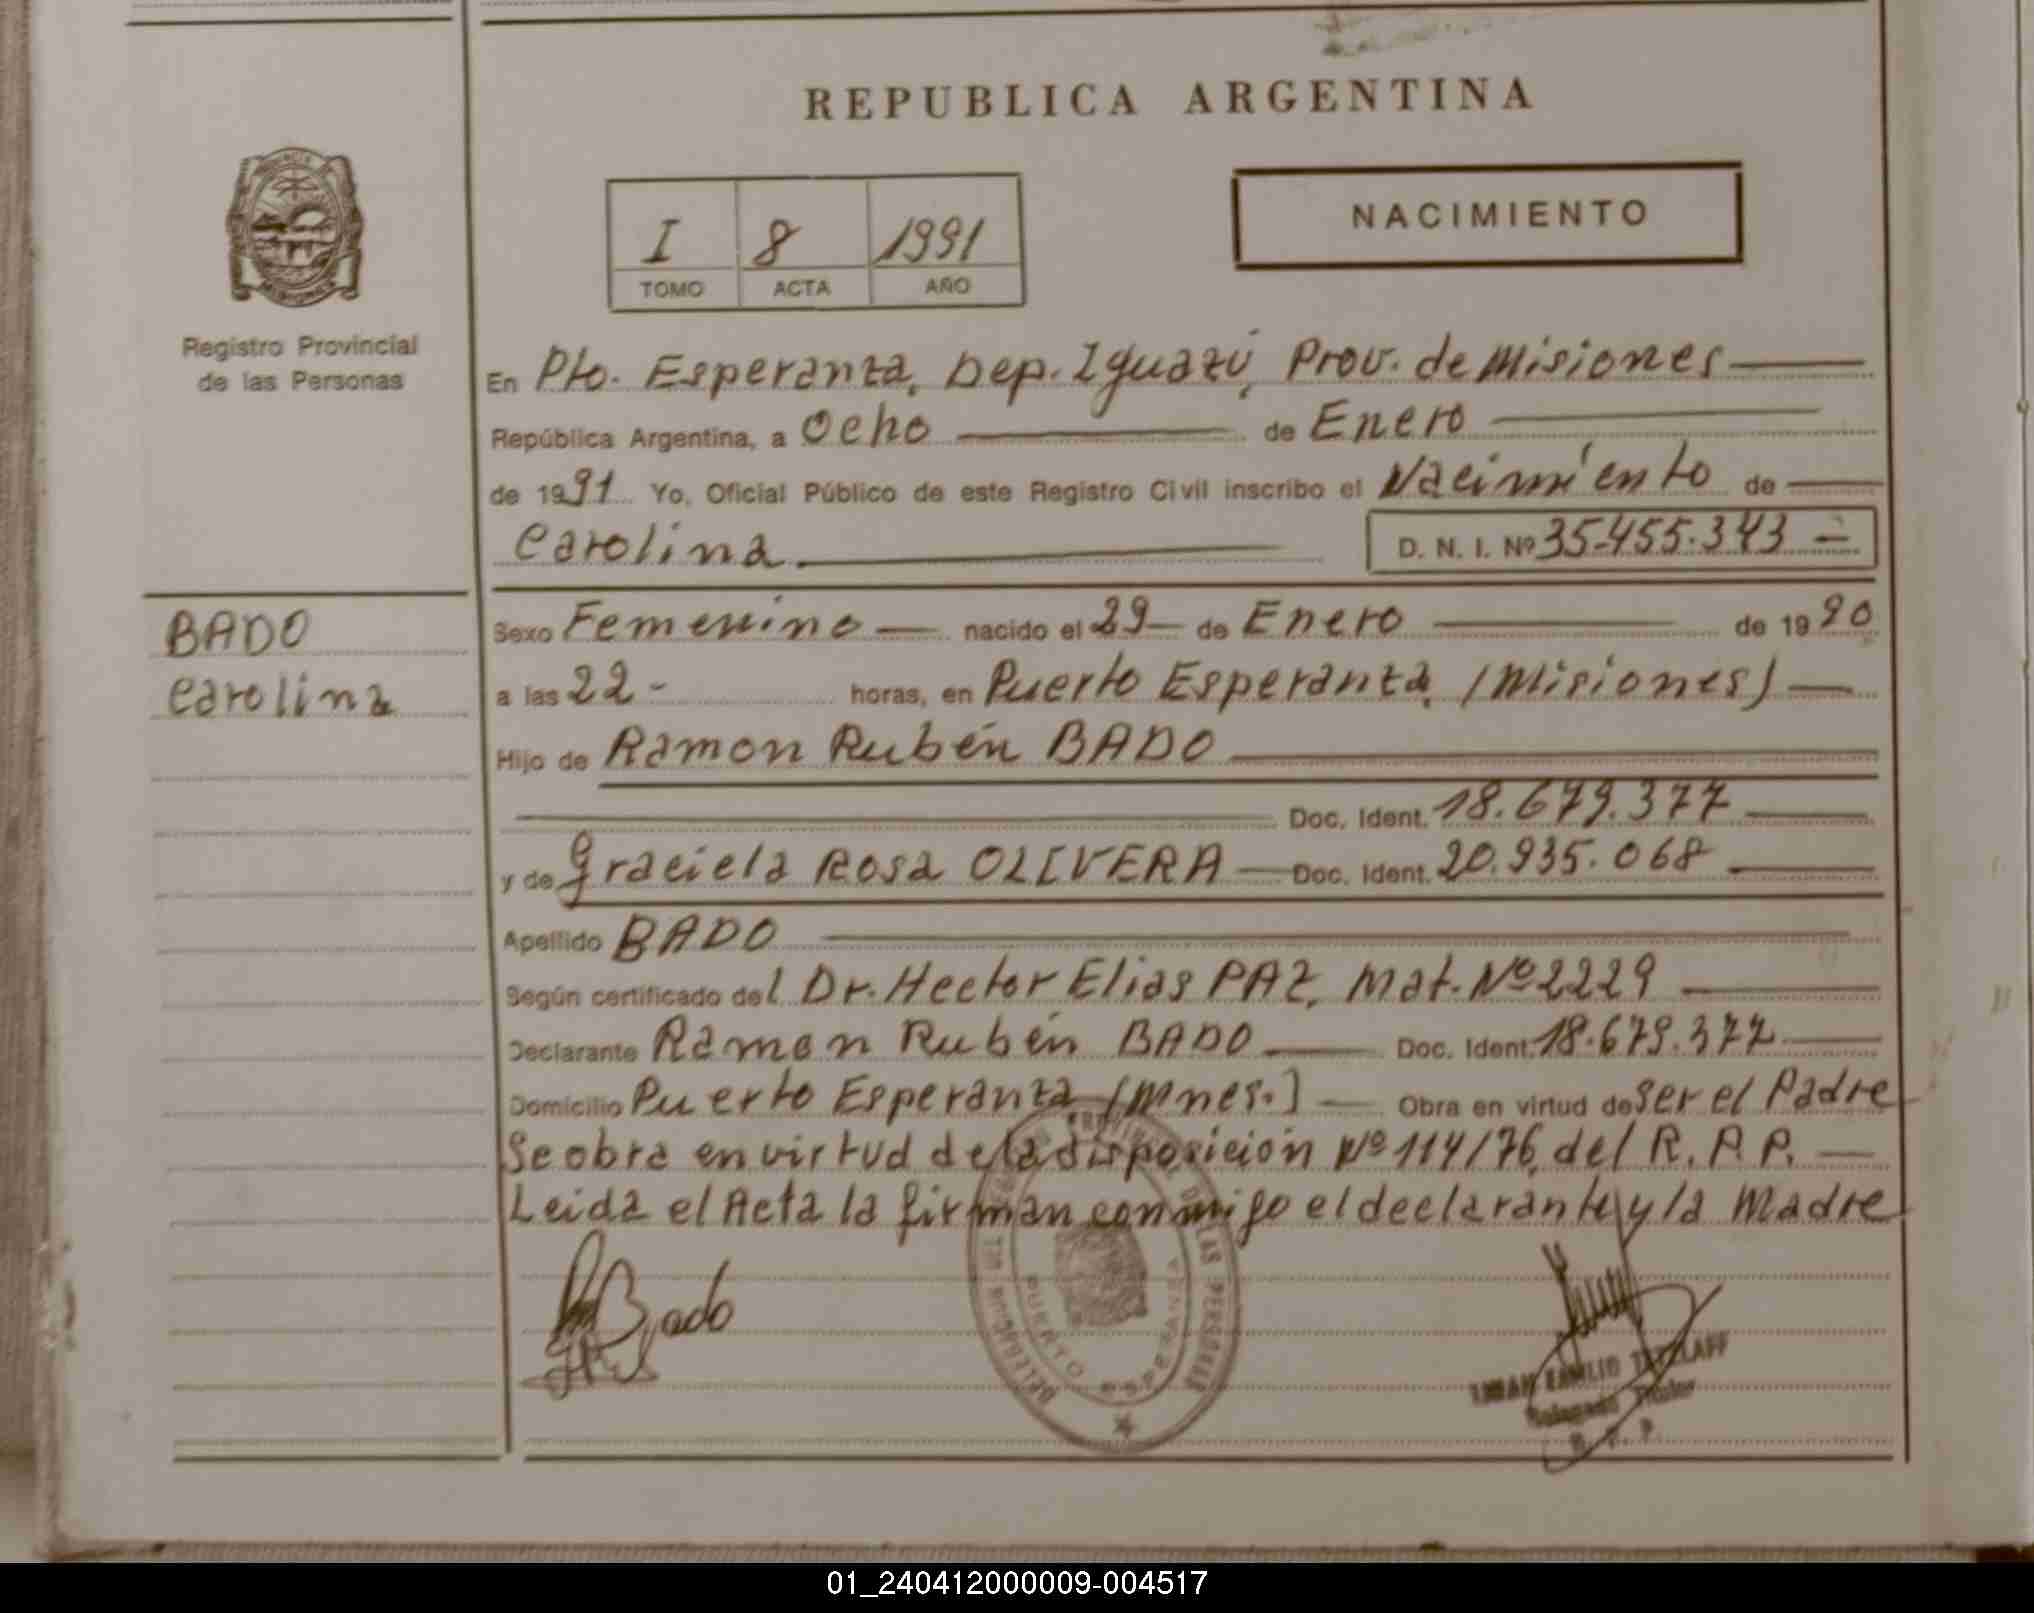 REPUBLICA ARGENTINA
NACIMIENTO
I 8 1991
TOMO ACTA AÑO
Registro Provincial
de las Personas
En Pto. Esperanza, Dep. Iguazú, Prov. de Misiones
República Argentina, a Ocho de Enero
de 1991 Yo, Oficial Público de este Registro Civil inscribo el Nacimiento de
Carolina D. N. I. Nº 35.455.343
BADO
Carolina
Sexo Femenino nacido el 29 de Enero de 1990
a las 22- horas, en Puerto Esperanza, (Misiones)
Hijo de Ramon Rubén BADO
Doc. Ident. 18.679.377
y de Graciela Rosa OLIVERA Doc. Ident. 20.935.068
Apellido BADO
Según certificado del Dr. Hector Elias PAZ, Mat. Nº 2229
Declarante Ramon Rubén BADO Doc. Ident. 18.679.377
Domicilio Puerto Esperanza (Mnes.) Obra en virtud de ser el Padre
Se obra en virtud de la disposición Nº 114/76, del R. P. P.
Leida el Acta la firman conmigo el declarante y la Madre
Bado
PUERTO ESPERANZA
DE LAS PERSONAS
EMILIO
Delegado Titular
R. P. P.
01_240412000009-004517